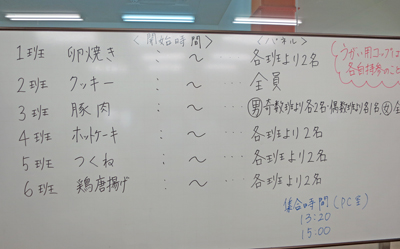 〈開始時間〉 〈パネル〉
1班 卵焼き 〜 … 各班より2名
2班 クッキー 〜 … 全員
3班 豚肉 〜 … 男奇数班より各2名・偶数班より各1名 女全
4班 ホットケーキ 〜 … 各班より2名
5班 つくね 〜 … 各班より2名
6班 鶏唐揚げ 〜 … 各班より2名
うがい用コップは
各自持参のこと
集合時間(PC室)
13:20
15:00